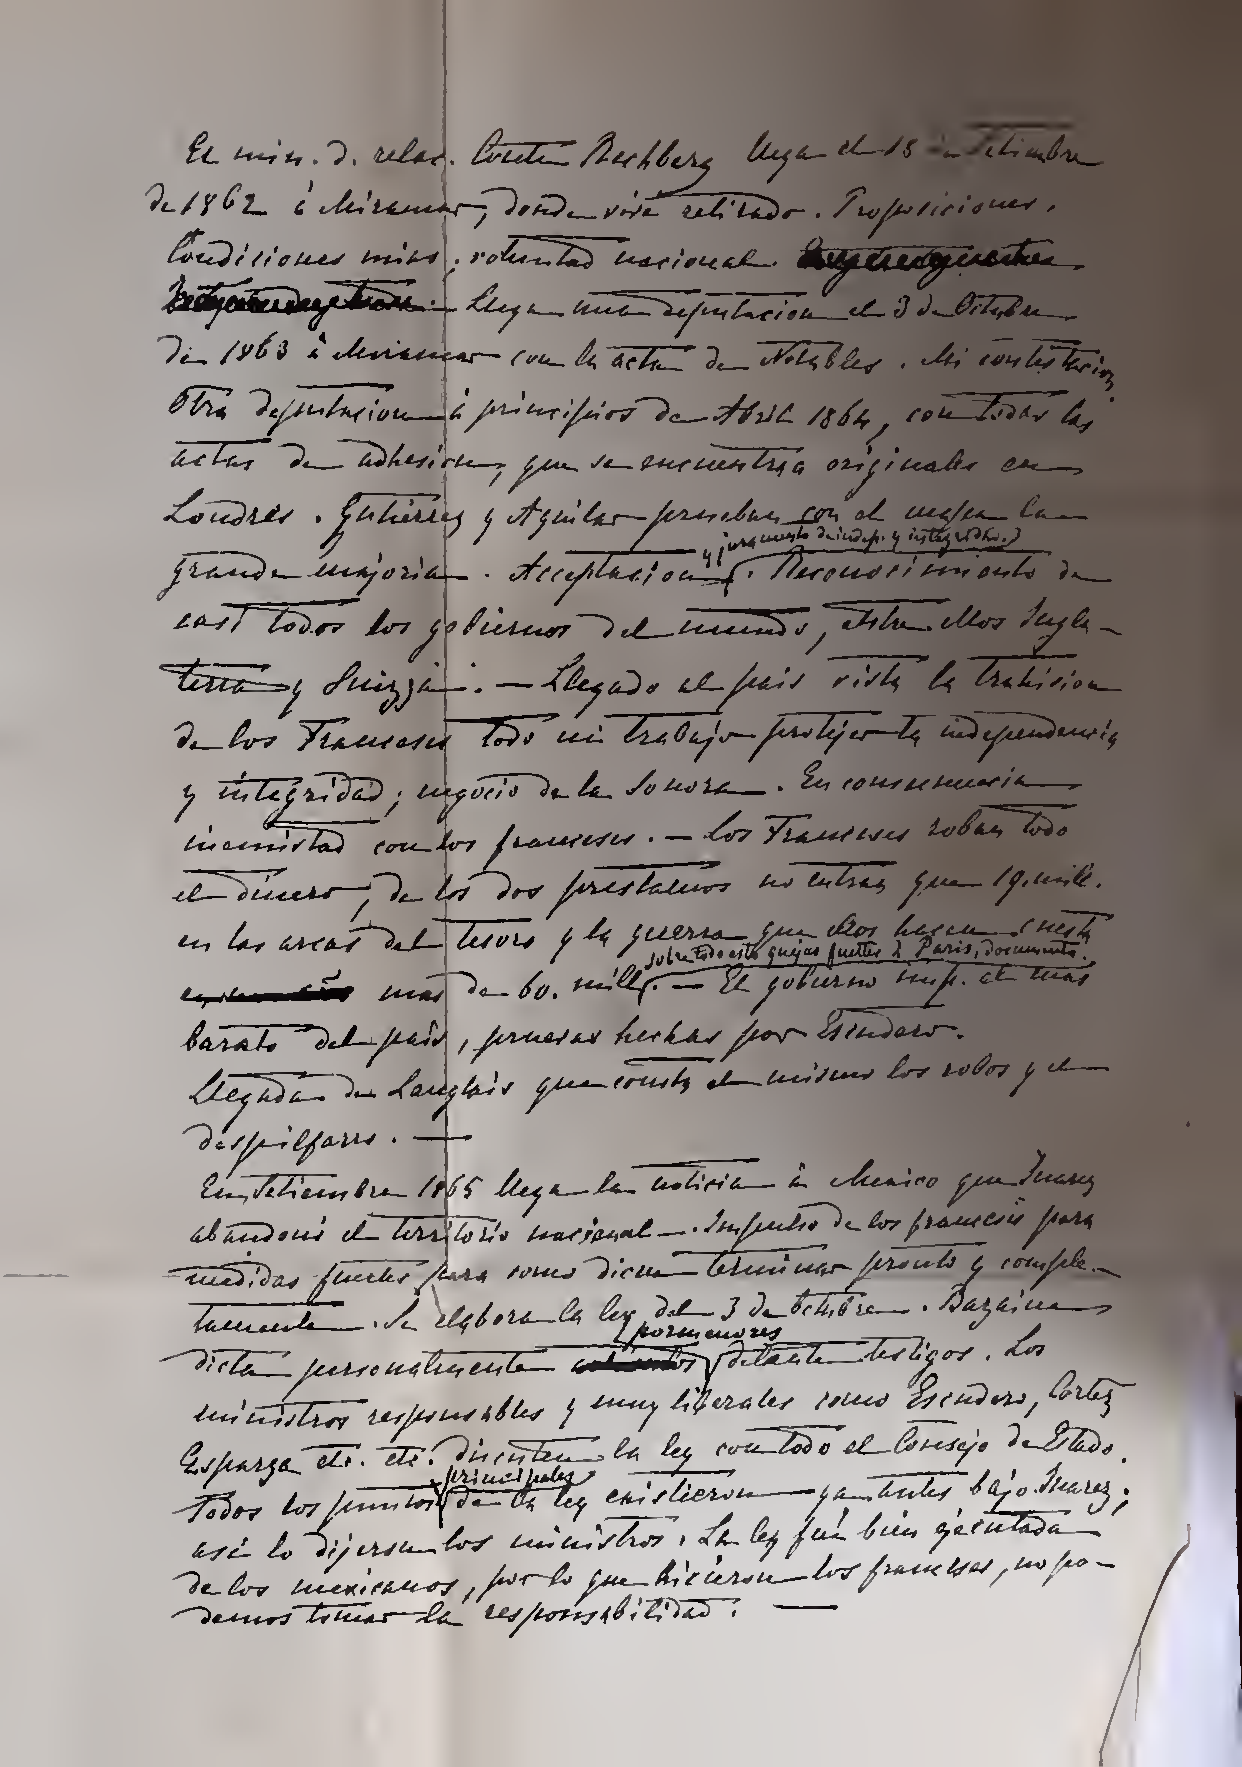 El min. d. relac. Conde Rechberg llega el 18 de Setiembre
de 1862 à Miramar, donde vivia retirado. Proposiciones.
Condiciones mias, voluntad nacional.
Llega una deputacion el 3 de Octubre
de 1863 à Miramar con la acta de Notables. Mi contestacion.
Otra deputacion à principios de Abril 1864, con todas las
actas de adhesion, que se encuentran originales en
Londres. Gutierrez y Aguilar prueban con el mapa la
y juramento de indep. y integridad.
grande majoria. Acceptacion. Reconocimiento de
casi todos los gobiernos del mundo, entre ellos Ingla-
terra y Suizza. — Llegado al pais vista la trahision
de los Franceses todo mi trabajo protejer la independencia
y integridad; negocio de la Sonora. En consecuencia
inemistad con los franceses. — Los Franceses roban todo
el dinero, de los dos prestamos no entran que 19. mill.
en las arcas del tesoro y la guerra que ellos hacen cuesta
sobre todo esto quejas fuertes à Paris, documento.
mas de 60. mill. — El gobierno imp. el mas
barato del pais, pruevas hechas por Escudero.
Llegada de Langlais que consta el mismo los robos y el
despilfarro. —
En Setiembre 1865 llega la noticia à Mexico que Juarez
abandonó el territorio nacional. Impulso de los franceses para
medidas fuertes para como dicen terminar pronto y comple-
tamente. Se elabora la ley del 3 de Octubre. Bazaine
pormenores
dicta personalmente delante testigos. Los
ministros responsables y muy liberales como Escudero, Cortez
Esparza etc. etc. discuten la ley con todo el Consejo de Estado.
principales
Todos los puntos de la ley existieron ya antes bajo Juarez;
asi lo dijeron los ministros. La ley fué bien ejecutada
de los mexicanos, por lo que hicieron los franceses, no po-
demos tomar la responsabilidad. —